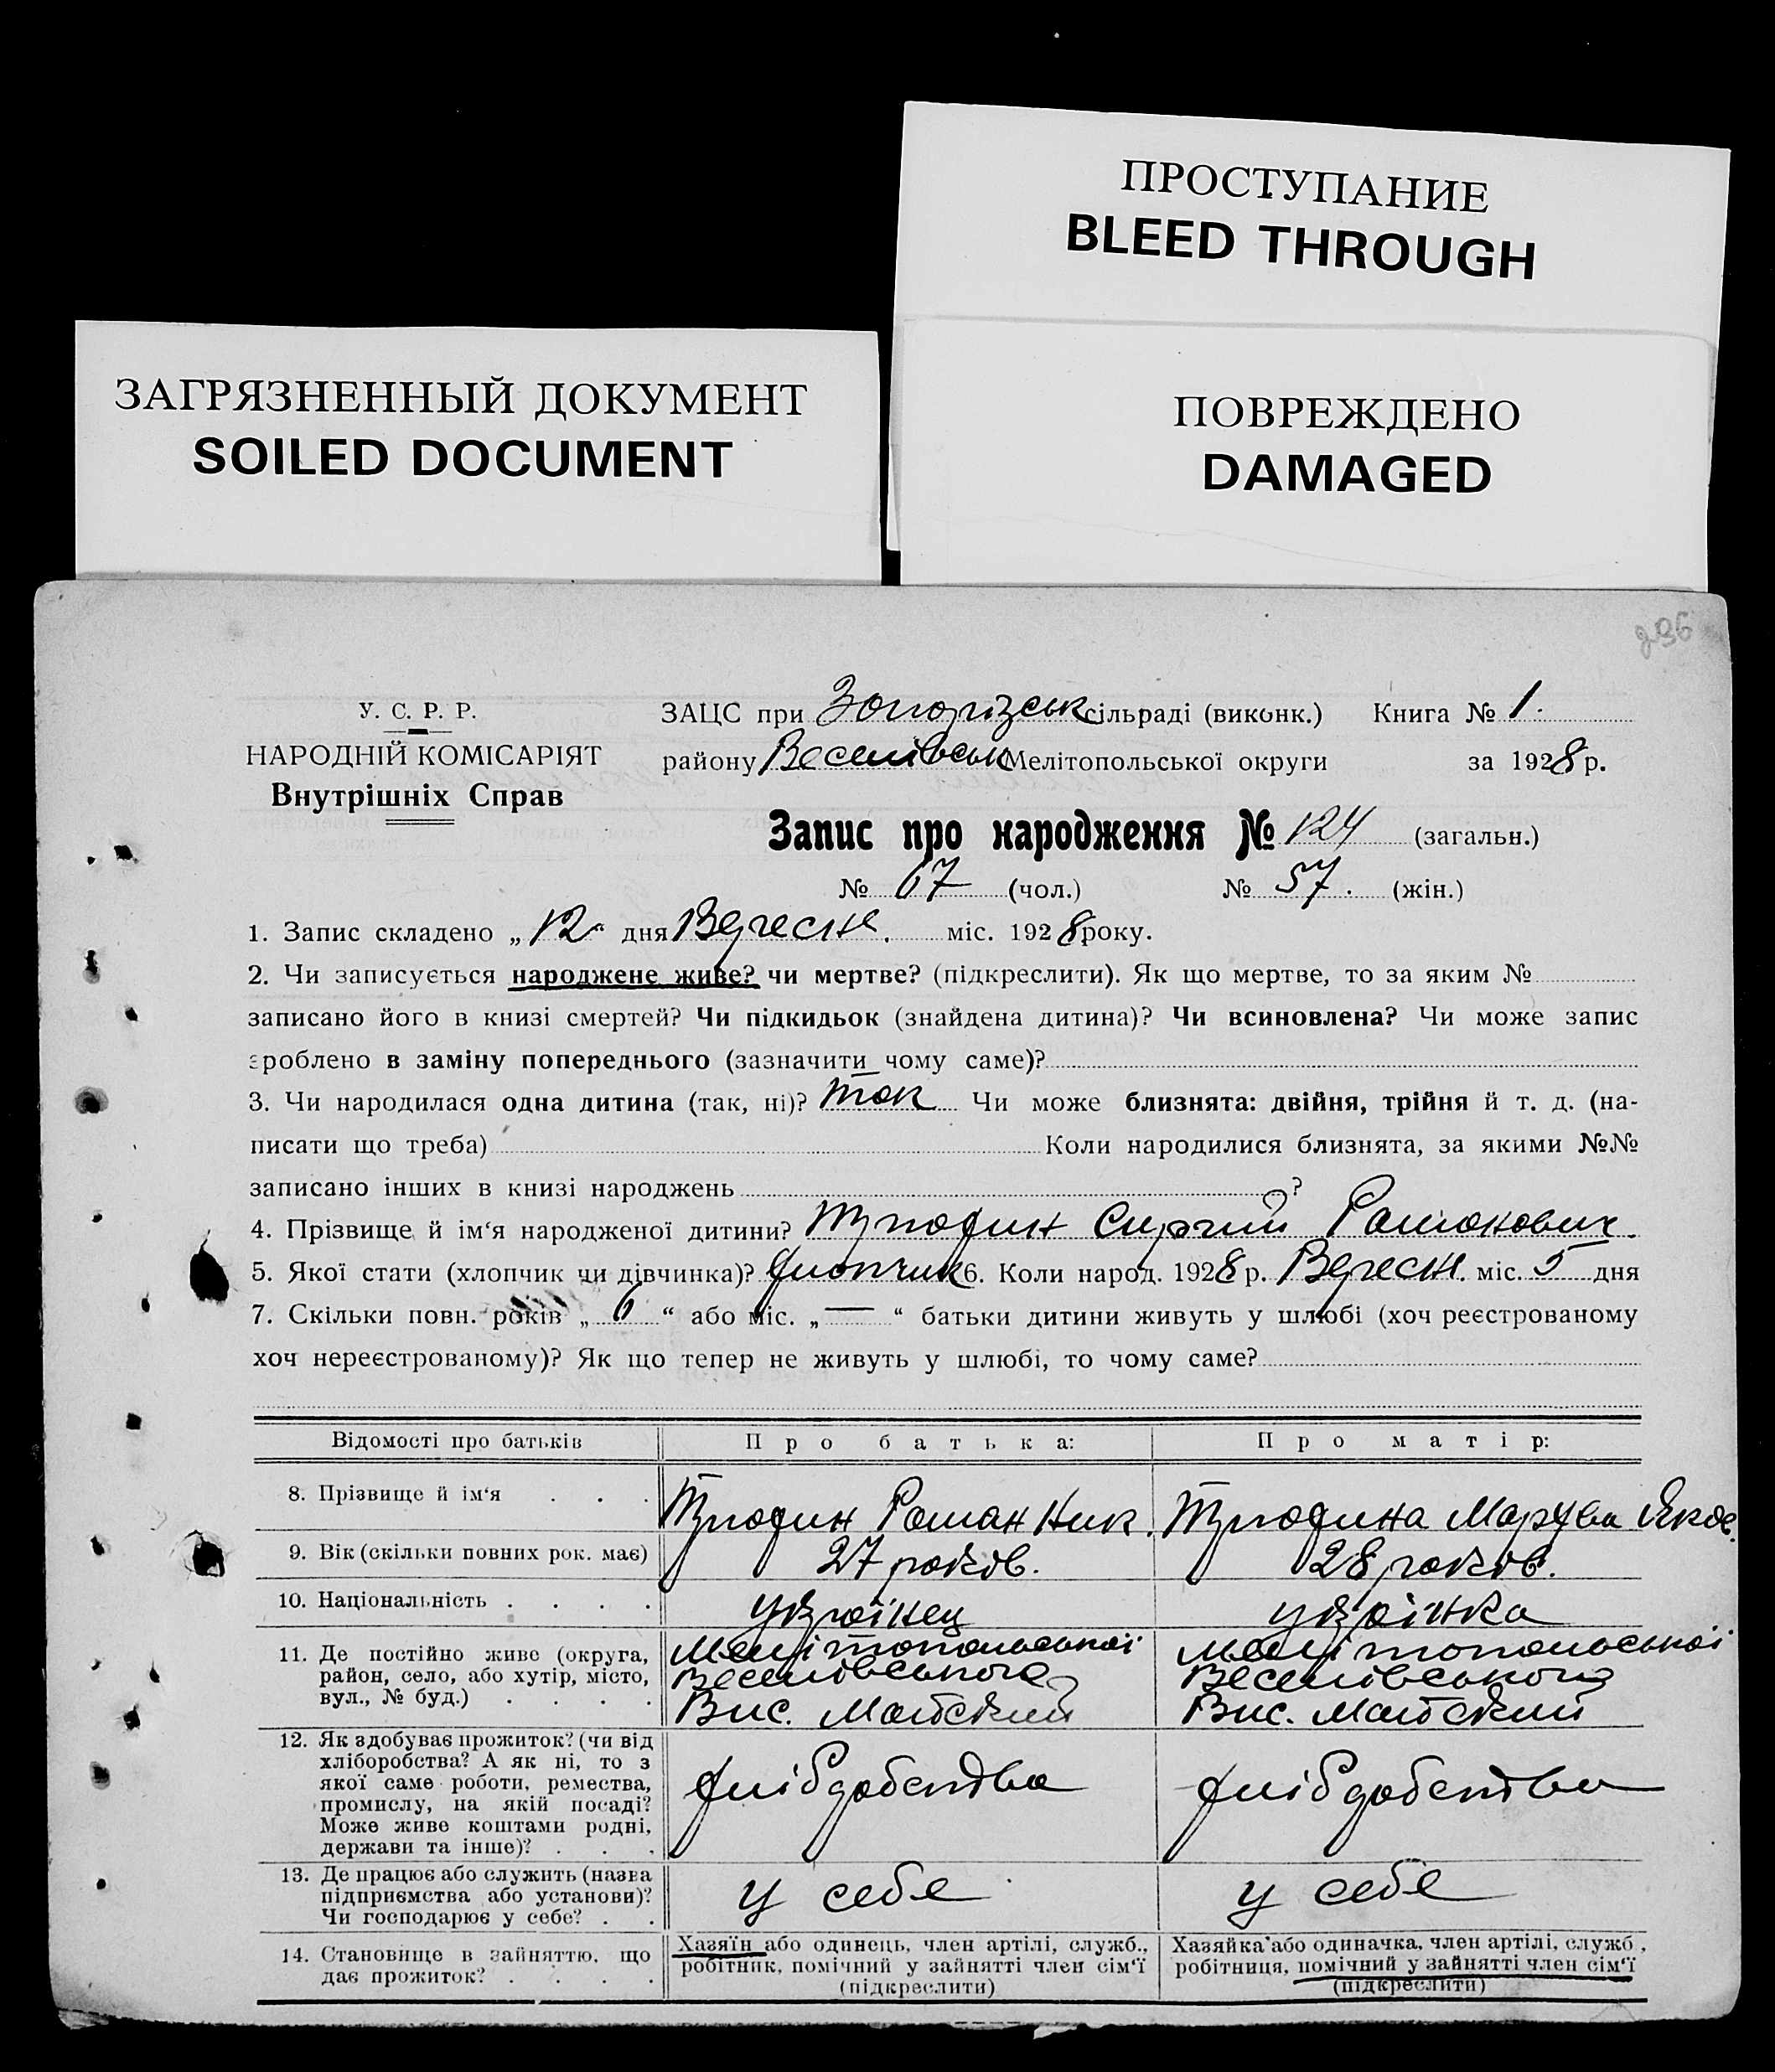 ПРОСТУПАНИЕ
BLEED THROUGH
ЗАГРЯЗНЕННЫЙ ДОКУМЕНТ
SOILED DOCUMENT
ПОВРЕЖДЕНО
DAMAGED
296
У. С. Р. Р.
НАРОДНІЙ КОМІСАРІЯТ
Внутрішніх Справ
ЗАЦС при Запорізськ сільраді (виконк.) Книга № 1.
району Веселівськ Мелітопольської округи за 1928 р.
Запис про народження № 124 (загальн.)
№ 67 (чол.) № 57. (жін.)
1. Запис складено „12“ дня Вересне. міс. 1928 року.
2. Чи записується народжене живе? чи мертве? (підкреслити). Як що мертве, то за яким №
записано його в книзі смертей? Чи підкидьок (знайдена дитина)? Чи всиновлена? Чи може запис
зроблено в заміну попереднього (зазначити чому саме)?
3. Чи народилася одна дитина (так, ні)? так Чи може близнята: двійня, трійня й т. д. (на-
писати що треба) Коли народилися близнята, за якими №№
записано інших в книзі народжень ?
4. Прізвище й ім‘я народженої дитини? Сиргий Романович.
5. Якої стати (хлопчик чи дівчинка)? хлопчик 6. Коли народ. 1928 р. Вересн. міс. 5 дня
7. Скільки повн. років „ 6 “ або міс. „ — “ батьки дитини живуть у шлюбі (хоч реєстрованому
хоч нереєстрованому)? Як що тепер не живуть у шлюбі, то чому саме?
Відомості про батьків Про батька: Про матір:
8. Прізвище й ім‘я . . . Роман Ник. Яков.
9. Вік (скільки повних рок. має) 27 років. 28 років.
10. Національність . . . . українец українка
11. Де постійно живе (округа,
район, село, або хутір, місто,
вул., № буд.) . . . .
Мелітопольської
Веселівського
Вис. Майський
Мелітопольської
Веселівського
Вис. Майський
12. Як здобуває прожиток? (чи від
хліборобства? А як ні, то з
якої саме роботи, ремества,
промислу, на якій посаді?
Може живе коштами родні,
держави та інше)? . . .
хлібробства
хлібробства
13. Де працює або служить (назва
підприємства або установи)?
Чи господарює у себе? . .
у себе
у себе
14. Становище в зайняттю, що
дає прожиток? . . . .
Хазяїн або одинець, член артілі, служб.,
робітник, помічний у зайнятті член сім‘ї
(підкреслити)
Хазяйка або одиначка, член артілі, служб.,
робітниця, помічний у зайнятті член сім‘ї
(підкреслити)